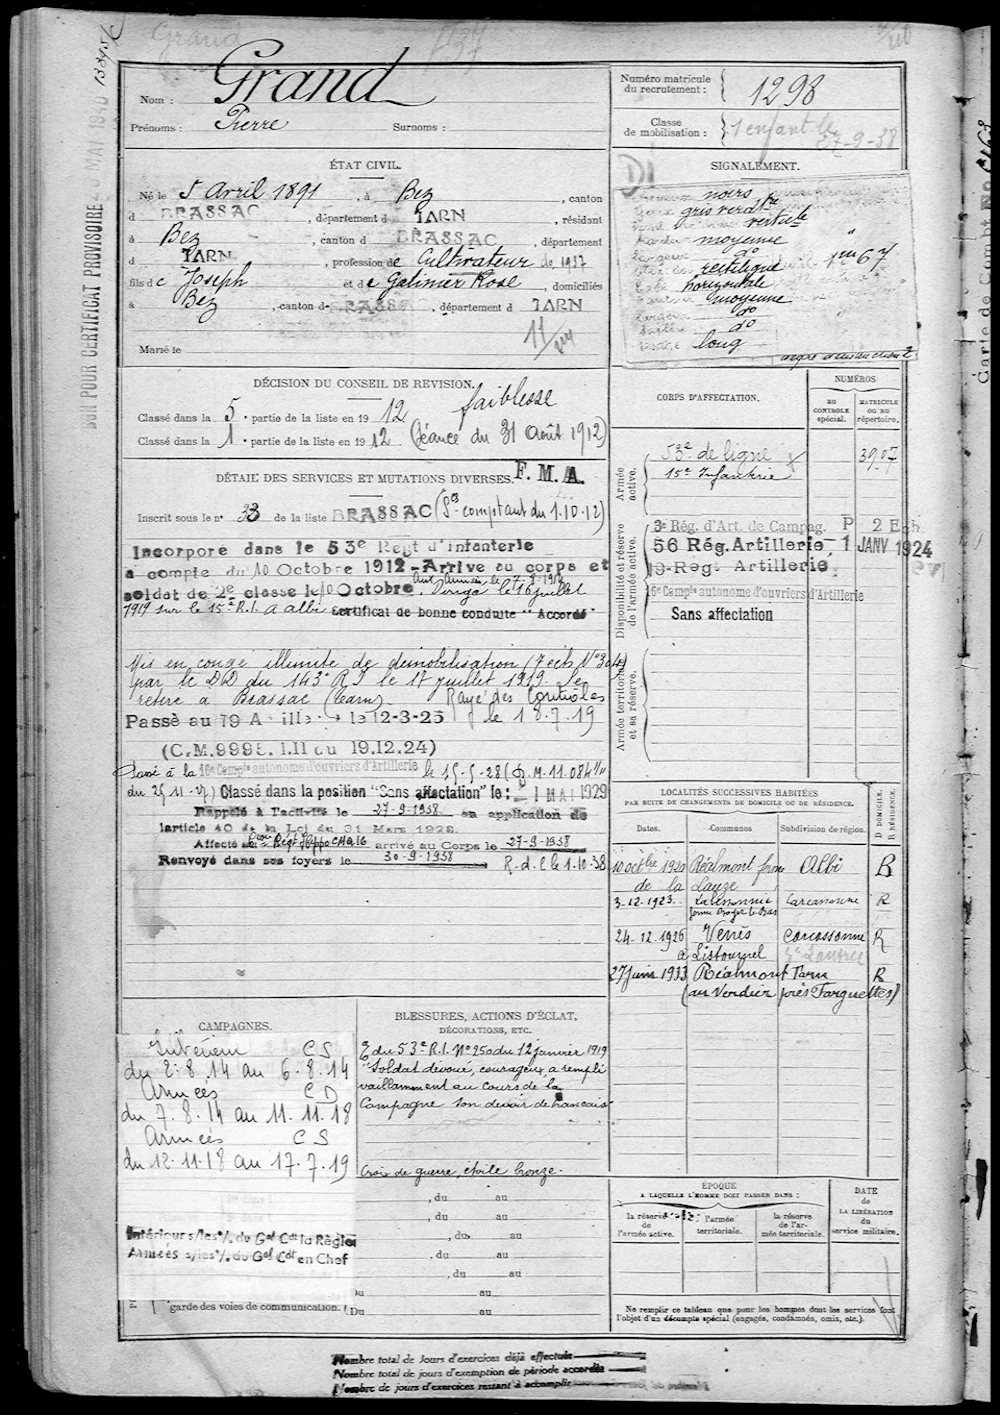 Grand
13895
BON POUR CERTIFICAT PROVISOIRE MAI 1940
Nom : Grand
Prénoms : Pierre Surnoms :
Numéro matricule
du recrutement : 1298
Classe
de mobilisation : 1 enfant le
27-9-38
ÉTAT CIVIL.
Né le 5 Avril 1891, à Bez, canton
d BRASSAC, département d TARN, résidant
à Bez, canton d BRASSAC, département
d TARN, profession de Cultivateur de 1937
fils de Joseph et de Galinier Rose, domiciliés
à Bez, canton d BRASSAC, département d TARN
Marié le
SIGNALEMENT.
noirs
gris verdtre
verticle
moyenne
do
rectiligne 1m 67
horizontale
moyenne
do
do
long
degré d'instruction 2
Carte de Combt No
DÉCISION DU CONSEIL DE REVISION.
Classé dans la 5e partie de la liste en 1912 faiblesse
Classé dans la 1e partie de la liste en 1912 (Séance du 31 Août 1912)
DÉTAIL DES SERVICES ET MUTATIONS DIVERSES. F. M. A.
Inscrit sous le no 33 de la liste BRASSAC (Son comptant du 1.10.12)
Incorporé dans le 53e Regt d'Infanterie
à compte du 10 Octobre 1912 - Arrivé au corps et
soldat de 2e classe le 10 Octobre. Aux Armées le 7-8-1914 Dirigé le 16 juillet
1919 sur le 15e R.I. à Albi Certificat de bonne conduite "Accordé"
Mis en congé illimité de démobilisation (7 ech No 304)
par le DD du 143e RI le 17 juillet 1919. Se
retire à Brassac (Tarn) Rayé des Contrôles
Passé au 19 A illie le 12-3-25 le 18.7.19
(C.M.9995.1.11 du 19.12.24)
Passé à la 16e Compie autonome d'ouvriers d'Artillerie le 15-5-28 (D.M. 11.084
du 25 11-27) Classé dans la position "Sans affectation" le : 1 MAI 1929
Rappelé à l'activité le 27-9-1938 en application de
larticle 40 de la Loi du 31 Mars 1928.
Affecté au Regt Hippo arrivé au Corps le 27-9-1938
Renvoyé dans ses foyers le 30-9-1938 R.d.C le 1.10.38
CORPS D'AFFECTATION.
NUMÉROS
AU CONTROLE spécial.
MATRICULE OU AU répertoire.
Armée active.
53e de ligne 3907
15e Infanterie
Disponibilité et réserve de l'armée active.
3e Rég. d'Art. de Campag. P 2 Ech
56 Rég. Artillerie 1 JANV 1924
19 Regt Artillerie
16e Compie autonome d'ouvriers d'Artillerie
Sans affectation
Armée territoriale et sa réserve.
LOCALITÉS SUCCESSIVES HABITÉES
PAR SUITE DE CHANGEMENTS DE DOMICILE OU DE RÉSIDENCE.
Dates. Communes Subdivision de région. D DOMICILE. R RÉSIDENCE.
10 octbre 1920 Réalmont ferme Albi R
de la Lauze
3-12-1923 Carcassonne R
24-12-1926 Venès Carcassonne R
à Listournel
27 Juin 1933 Réalmont Tarn R
(au Verdier près Farguettes)
CAMPAGNES.
Intérieur C S
du 2.8.14 au 6.8.14
Armées C D
du 7.8.14 au 11.11.18
Armées C S
du 12.11.18 au 17.7.19
Intérieur s/les o/. du Gal Cdt la Région
Armées s/les o/. du Gal Cdt en Chef
garde des voies de communication. (Du au
BLESSURES, ACTIONS D'ÉCLAT,
DÉCORATIONS, ETC.
du 53e R.I. No 250 du 12 janvier 1919
"Soldat dévoué, courageux, a rempli
vaillamment au cours de la
Campagne son devoir de francais
Croix de guerre, étoile bronze.
, du au
, du au
, du au
, du au
, du au
Du au
ÉPOQUE
A LAQUELLE L'HOMME DOIT PASSER DANS :
la réserve de l'armée active.
l'armée territoriale.
la réserve de l'armée territoriale.
DATE DE LA LIBÉRATION du service militaire.
Ne remplir ce tableau que pour les hommes dont les services font
l'objet d'un décompte spécial (engagés, condamnés, omis, etc.).
Nombre total de Jours d'exercices déjà effectués
Nombre total de jours d'exemption de période accordés
Nombre de jours d'exercices restant à accomplir